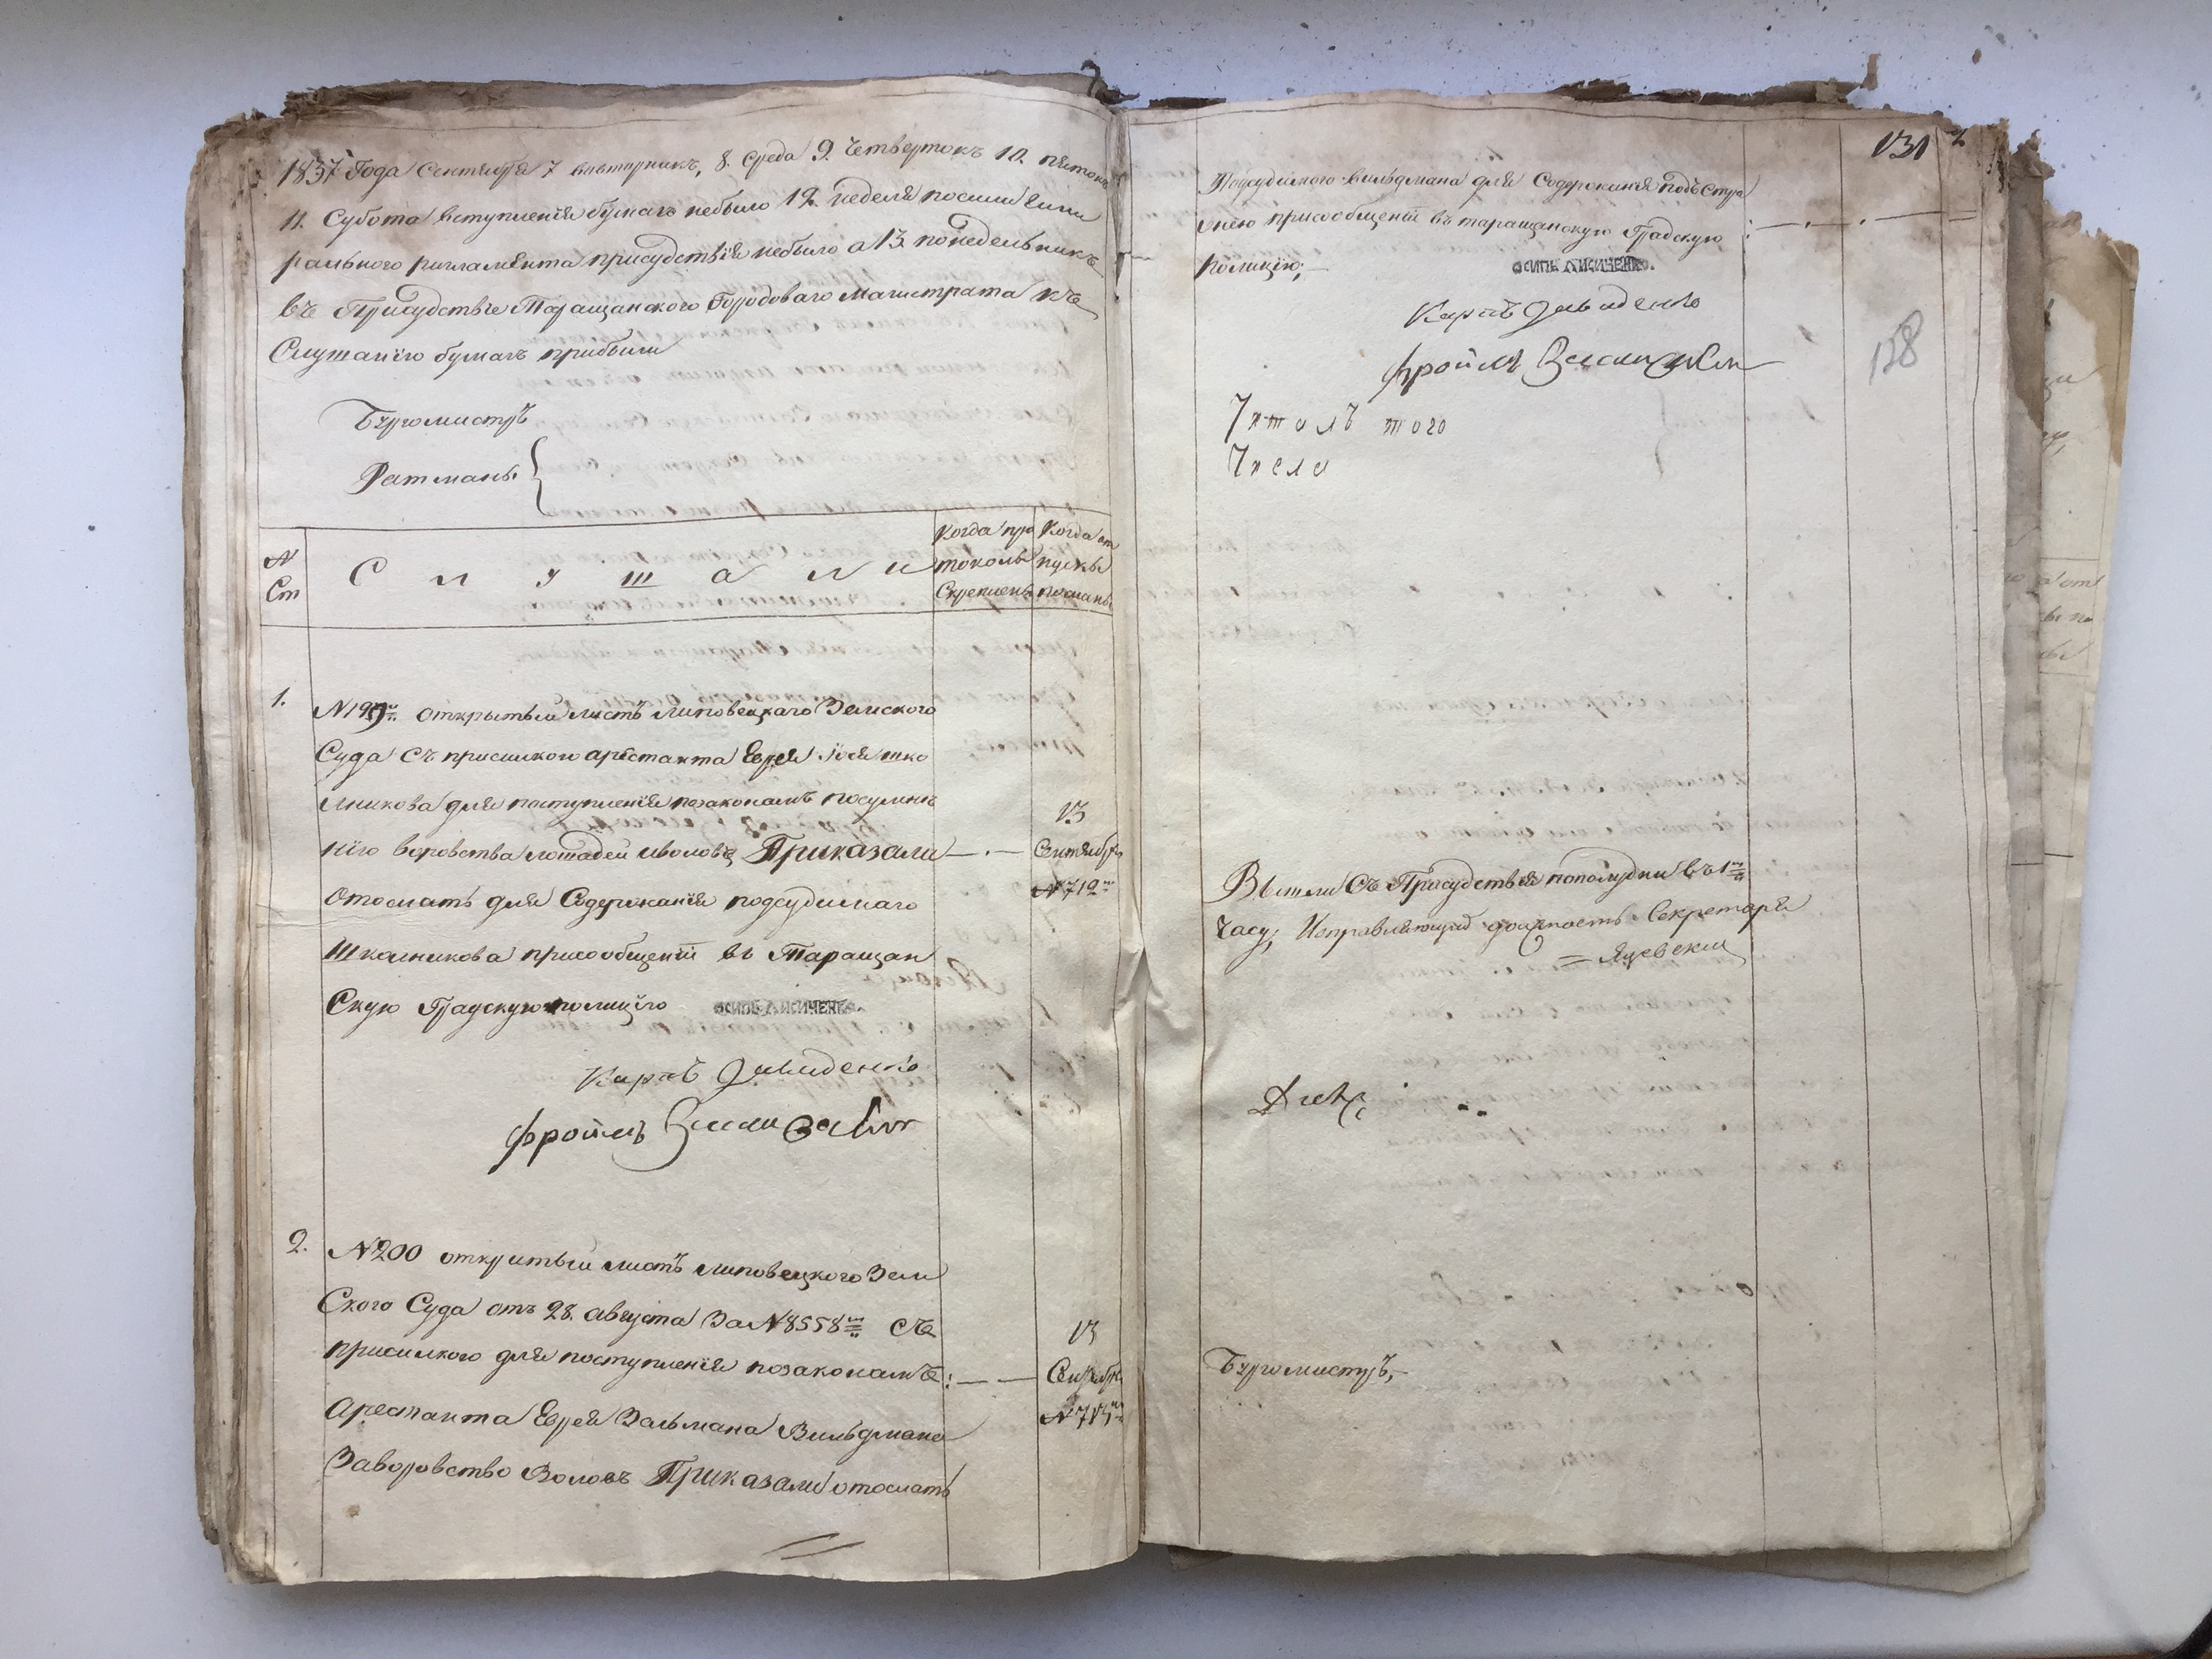 1837 Года Сентября 7 вовторникъ, 8. Среда 9. Четвертокъ 10. пятокъ
11. Субота вступленія бумагъ небыло 12. неделя посили Гени
ральнаго ригламента присудствія небыло а 13. понедельникъ
въ Присудствіе Таращанского Городоваго Магистрата къ
Слушанію бумагъ прибыли
Бургомистръ
Ратманы
N Ст
С л у ш а л и
Когда протоколы Скреплены
Когда отпуски посланы
1.
N199й открытый листъ Липовецкаго Земского
Суда съ присилкою арестанта Еврея Іося шко
лникова для поступленія позаконамъ посумне
нію воровства лошадей иволовъ Приказали
13 Сентября N 712м
Отослать для Содержанія подсудимаго
Школникова присообщеніи въ Таращан
Скую Градскую полицію
ОСИПЪ ЛИСИЧЕНКО.
Карпъ Давиденко
Фроимъ
2.
N200 открытый листъ Липовецкого Зем
Ского Суда отъ 28. Августа За N8558м съ
присилкою для поступленія позаконамъ
13 Сентября N 713м
Арестанта Еврея Зальмана Вильдмана
Заворовство Воловъ Приказали отослать
131
Подсудимого Вильдмана для Содержанія подъ Стра
жею присообщеніи въ таращанскую Градскую
полицію;
ОСИПЪ ЛИСИЧЕНКО.
Карпъ Давиденко
Фроимъ
128
Читалъ того
Числа
Вышли Съ Присудствія пополудни въ 1м
Часу, Исправляющій должность Секретаря
Яцевскій
Бургомистръ,